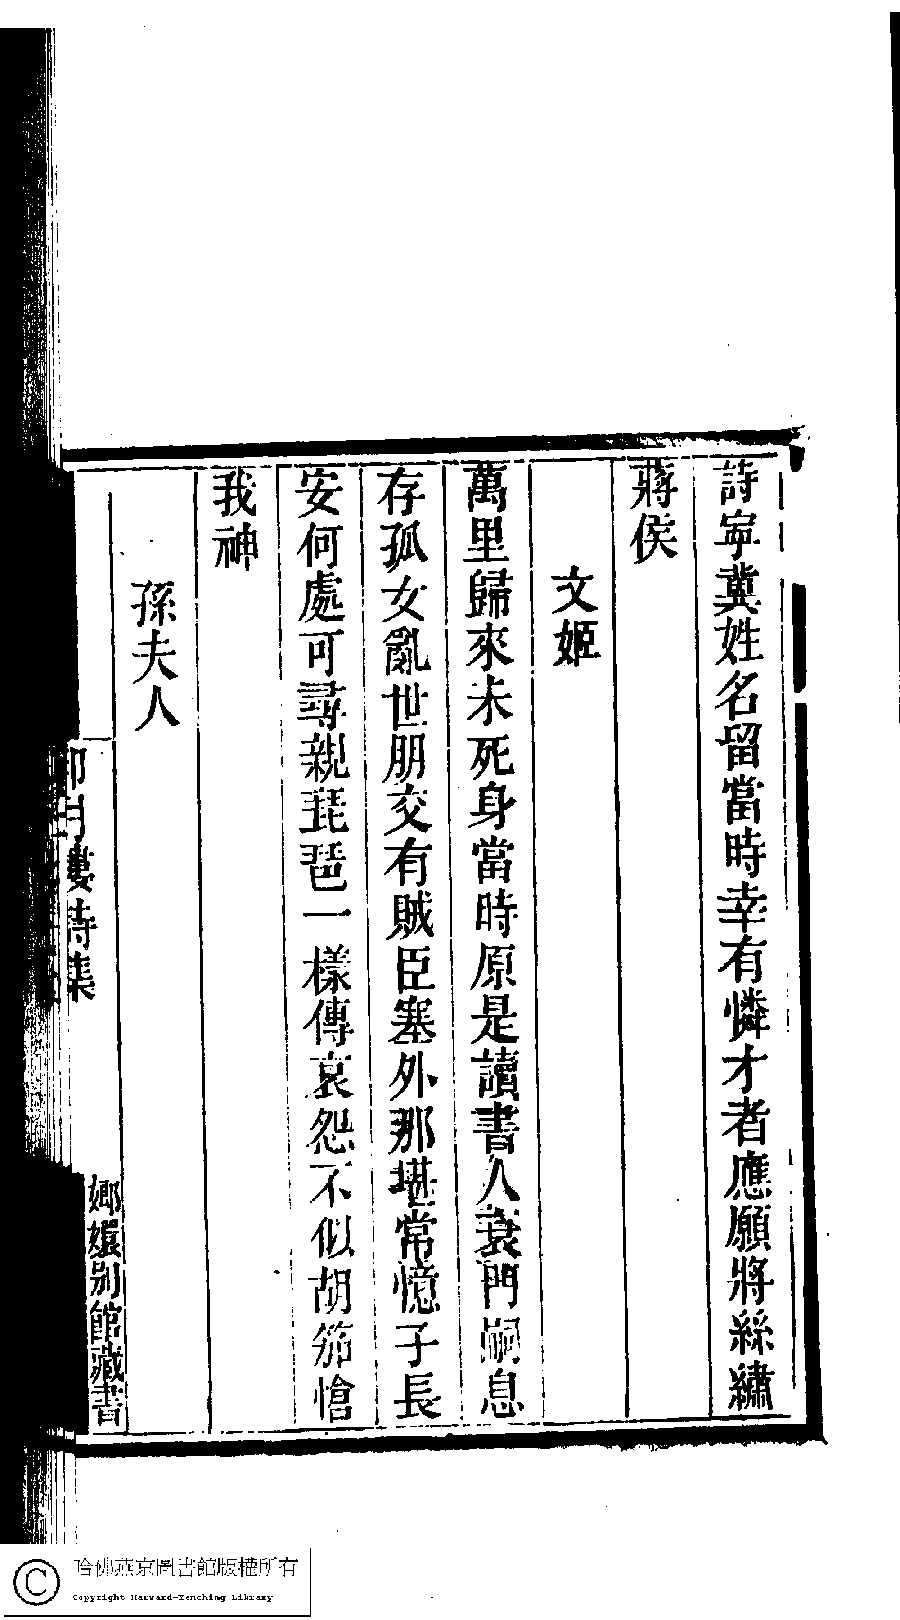 詩寜冀姓名留當時幸有憐才者應願將絲繡
蔣侯
文姬
萬里歸來未死身當時原是讀書人衰門嗣息
存孤女亂世朋交有賊臣塞外那堪常憶子長
安何處可尋親琵琶一樣傳哀怨不似胡笳愴
我神
孫夫人
月樓詩集
嫏嬛別館藏書
哈佛燕京圖書館版權所有
Copyright Harvard-Yenching Library